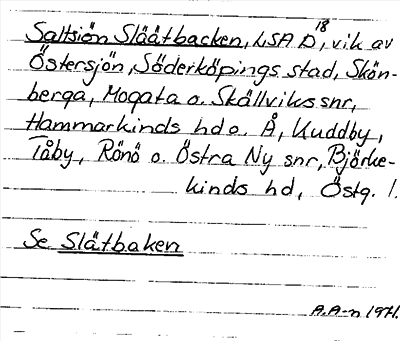 Saltsiön Slåätbacken, LSA D 18, vik av
Östersjön, Söderköpings stad, Skön-
berga, Mogata o. Skällviks snr,
Hammarkinds hd o. Å, Kuddby,
Tåby, Rönö o. Östra Ny snr, Björke-
kinds hd, Östg. l.
Se Slätbaken
A.A-n 1971.